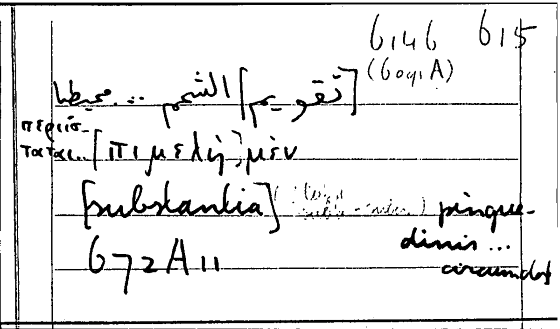 6146 615
(6091A)
[تقويم] الشحم ... محيطا
περιίσ-
ταται.. [πιμελὴ] μὲν
[substantia] pingue-
dinis...
672A11 circumdat